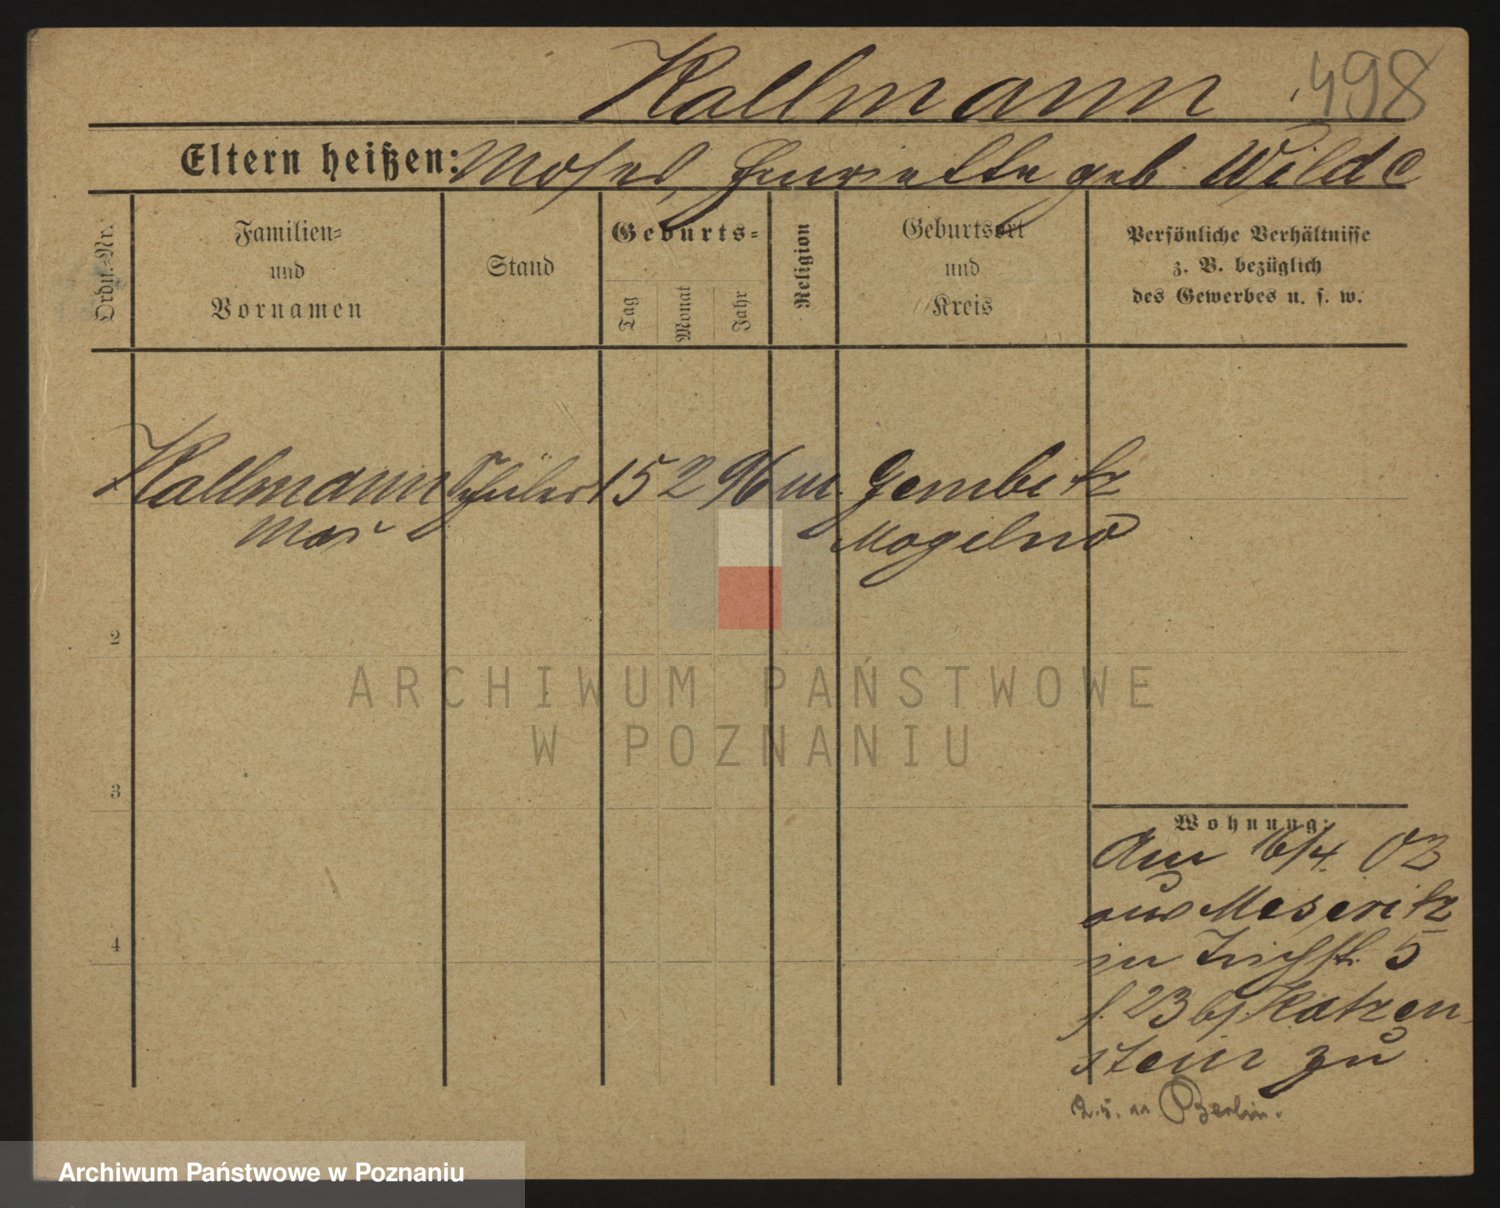 Kallmann 498
Eltern heißen: Moses, Henriette geb. Wilde
Ordn.-Nr.
Familien-
und
Vornamen
Stand
Geburts-
Tag
Monat
Jahr
Religion
Geburtsort
und
Kreis
Persönliche Verhältnisse
z. B. bezüglich
des Gewerbes u. s. w.
Kallmann Schüler 15 2 96 m. Gembitz
Max Mogelno
2
3
4
ARCHIWUM PAŃSTWOWE
W POZNANIU
Wohnung:
Am 16/4. 03
aus Meseritz
in 5
b/ Katzen
stein zu
Berlin.
Archiwum Państwowe w Poznaniu